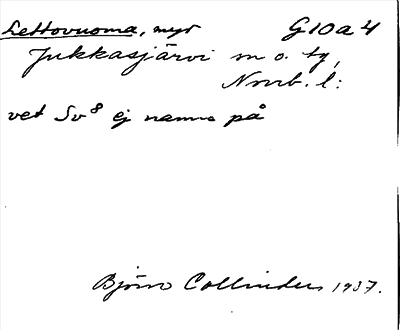 Lettovuoma, myr G10a4
Jukkasjärvi sn o. tg,
Nmrb. l:
vet Sv8 ej namn på
Björn Collinder 1937.